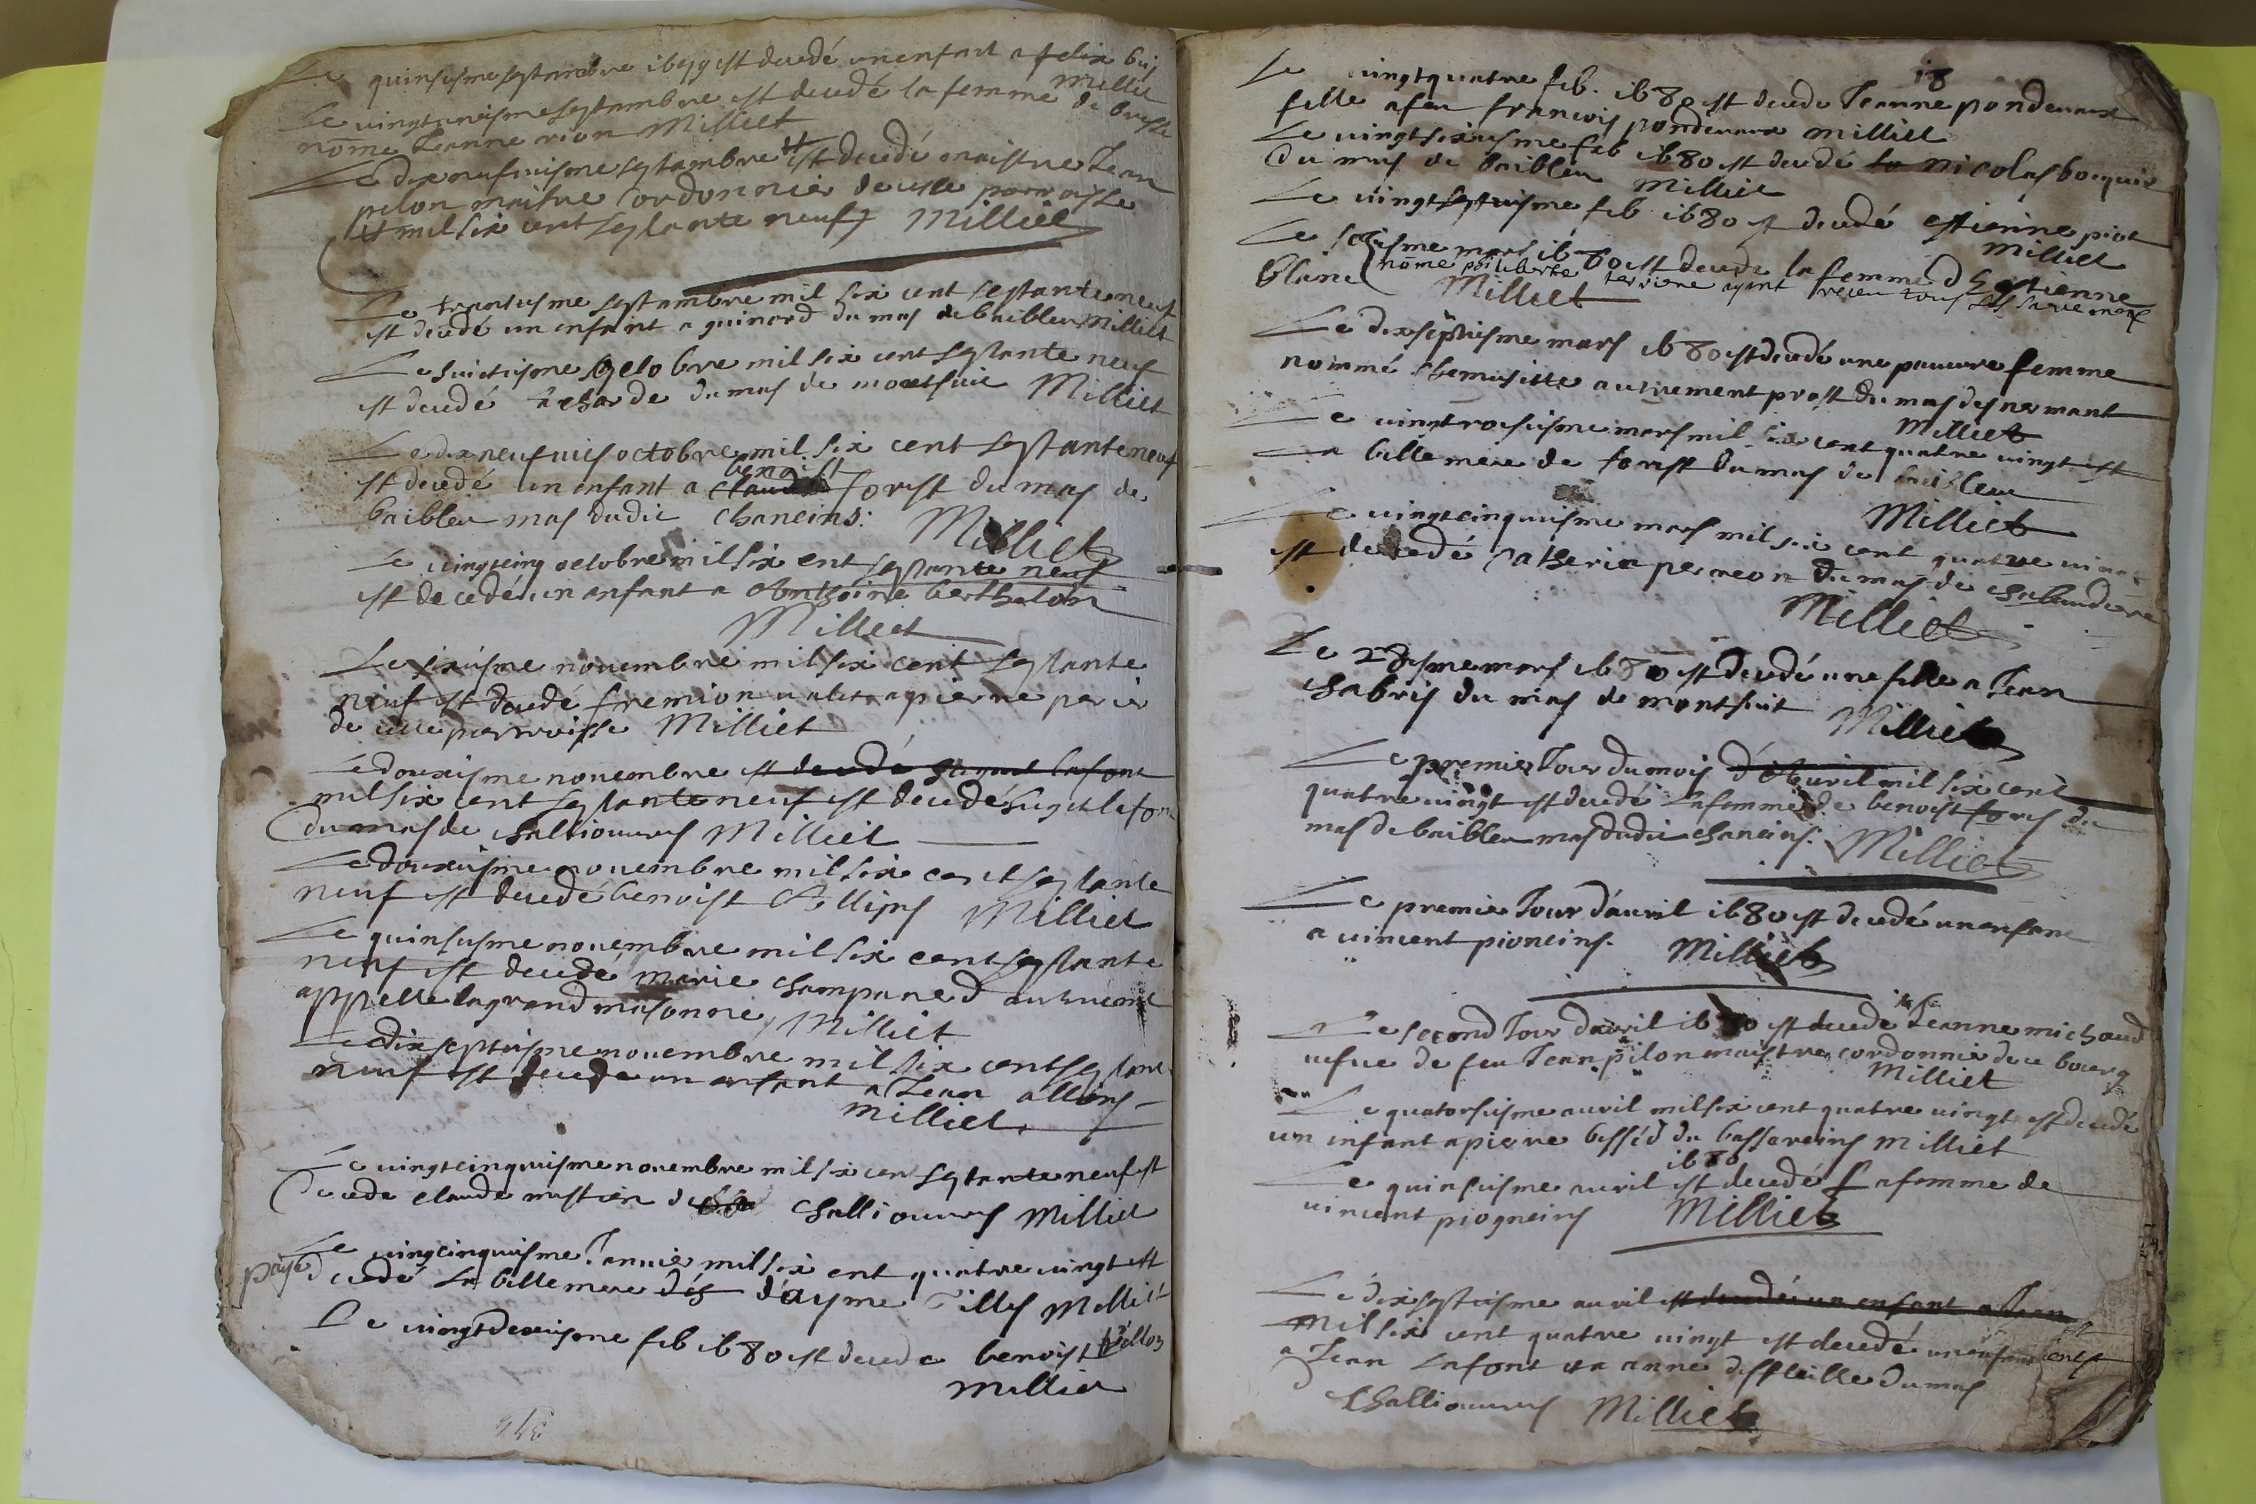 Le quinsiesme septambre 1679 est decedé un enfant a felix buy
Milliet
Le vingtuniesme septambre est decedé la femme de bresse
nōme Jeanne rion Milliet
Le dixneufviesme septambre est decedé maistre Jean
pelon maistre cordonnier de cette parroisse
mil six cent septante neufz Milliet
Le trantiesme septambre mil six cent septante neuf
est decedé un enfant a guinard du mas de baibleu Milliet
Le huictiesme octobre mil six cent septante neuf
est decedé charde du mas de montfuit Milliet
Le dixneufvies octobre mil six cent septante neuf
benoist
est decedé un enfant a claude forest du mas de
baibleu mas dudit chaneins: Milliet
Le vingtcinq octobre mil six cent septante neuf
est decedé un enfant a Anthoine berthelon
Milliet
Le sixiesme novembre mil six cent septante
neuf est decedé fremion valet a pierre perier
de cette parroisse Milliet
Le douxiesme novembre est decedé huguet lafont
mil six cent septante neuf est decedé huguet lafont
du mas de challiouvres Milliet
Le douxiesme novembre mil six cent septante
neuf est decedé benoist Milliet
Le quinsiesme novembre mil six cent septante
neuf est decedé marie champaned autrement
appelle la grand masonne Milliet
Le dixseptiesme novembre mil six cent septante
neuf est decedé un enfant a Jean allions
Milliet
Le vingtcinquiesme novembre mil six cent septante neuf est
decede claude mustier de challiouvres Milliet
Le vingtcinquiesme Janvier mil six cent quatre vingt est
paye decedé la bellemere des d'ayme Tilles Milliet
Le vingtdeuxiesme feb 1680 est decede benoist
Milliet
18
Le vingtquatre feb. 1680 est decede Jeanne pondevaux
fille a feu francois pondevaux Milliet
Le vingtsixiesme feb 1680 est decedé la Nicolas bocquis
du mas de baibleu Milliet
Le vingtseptiesme feb 1680 est decedé estienne piot
Milliet
Le sesiesme mars 1680 est decede la femme d'Estienne
nōme philiberte terriere ayant receu tous les sacremens
blanc Milliet
Le dixseptiesme mars 1680 est decedé une pauvre femme
nommé chemisitte autrement prost du mas des nermant
Milliet
Le vingtroisiesme mars mil six cent quatre vingt est
La bellemere de forest du mas de baibleu
Milliet
Le vingtcinquiesme mars mil six cent quatre vingt
est decedé Catherin perreon du mas de chabaudiere
Milliet
Le 28iesme mars 1680 est decedé une fille a Jean
chabris du mas de montfuit Milliet
Le premier Jour du mois d'Avuril mil six cent
quatre vingt est decedé la femme de benoist fores du
mas de baibleu mas dudit chaneins: Milliet
Le premier Jour d'avril 1680 est decedé un enfant
a vincent pioneins. Milliet
Le second Jour d'avril 1680 est decede Jeanne michaud
vefve de feu Jean pilon maistre cordonnie de ce bourg
Milliet
Le quatorsiesme avril mil six cent quatre vingt est decedé
un infant a pierre besséd du bassereins Milliet
1680
Le quinsiesme avril est decedé La femme de
vincent piogneins Milliet
Le dixseptiesme avril est decedé un enfant a Jean
mil six cent quatre vingt est decedé un enfant
a Jean Lafont et a anne desfleille du mas
challiouvres Milliet